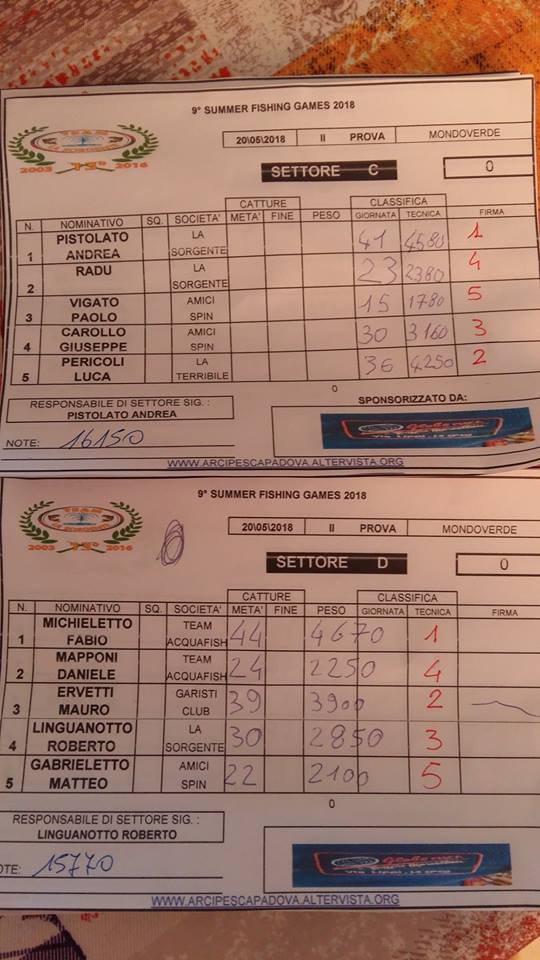 9° SUMMER FISHING GAMES 2018
TEAM
2003 15° 2016
20\05\2018 II PROVA MONDOVERDE
SETTORE C 0
CATTURE CLASSIFICA
N. NOMINATIVO SQ. SOCIETA' META' FINE PESO GIORNATA TECNICA FIRMA
PISTOLATO LA
1 ANDREA SORGENTE 41 4580 1
RADU LA
2 SORGENTE 23 2380 4
VIGATO AMICI
3 PAOLO SPIN 15 1780 5
CAROLLO AMICI
4 GIUSEPPE SPIN 30 3160 3
PERICOLI LA
5 LUCA TERRIBILE 36 4250 2
0
RESPONSABILE DI SETTORE SIG. : SPONSORIZZATO DA:
PISTOLATO ANDREA
NOTE: 16150
WWW.ARCIPESCAPADOVA.ALTERVISTA.ORG
9° SUMMER FISHING GAMES 2018
TEAM
2003 15° 2016
20\05\2018 II PROVA MONDOVERDE
SETTORE D 0
CATTURE CLASSIFICA
N. NOMINATIVO SQ. SOCIETA' META' FINE PESO GIORNATA TECNICA FIRMA
MICHIELETTO TEAM
1 FABIO ACQUAFISH 44 4670 1
MAPPONI TEAM
2 DANIELE ACQUAFISH 24 2250 4
ERVETTI GARISTI
3 MAURO CLUB 39 3900 2
LINGUANOTTO LA
4 ROBERTO SORGENTE 30 2850 3
GABRIELETTO AMICI
5 MATTEO SPIN 22 2100 5
0
RESPONSABILE DI SETTORE SIG. :
LINGUANOTTO ROBERTO
OTE: 15770
WWW.ARCIPESCAPADOVA.ALTERVISTA.ORG